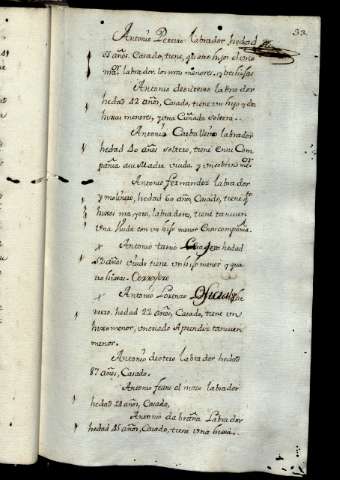 33.
Antonio Pereira labrador hedad
51 años, Casado, tiene, quatro hijos el uno
maor labrador los otros menores, y tres hijas
Antonio de outeiro labrador
hedad 42 años, Casado, tiene un hijo y dos
hijas menores, y una Cuñada soltera..
Antonio Carballeira labrador
hedad 40 años soltero, tiene en su Com
pañia a su Madre viuda, y un sobrino mor
Antonio Fernandez labrador
y molinero, hedad 60 años, Casado, tiene
hijos mayores, labradores, tiene tamvien
una Viuda con un hijo menor en su compañia.
Antonio hedad
52 años viudo tiene un hijo menor y qua
tro hijas.
Antonio Lorenzo
hedad 22 años, Casado, tiene un
hijo menor, un criado Aprendiz tamvien
menor.
Antonio de otero labrador hedad
87 años, Casado.
Antonio labrador
hedad 28 años, Casado,
Antonio da braña Labrador
hedad 45 años, Casado, tiene una hija..